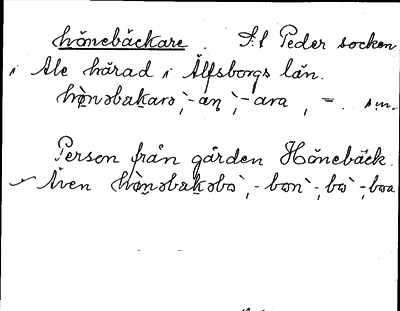 hönebäckare. S:t Peder socken
i Ale härad i Älfsborgs län.
hö̀nəbakarə, -an, -ara, = . s.m.
Person från gården Hönebäck.
Även hö̀nəbakəbo, -bon, -bo, -boa